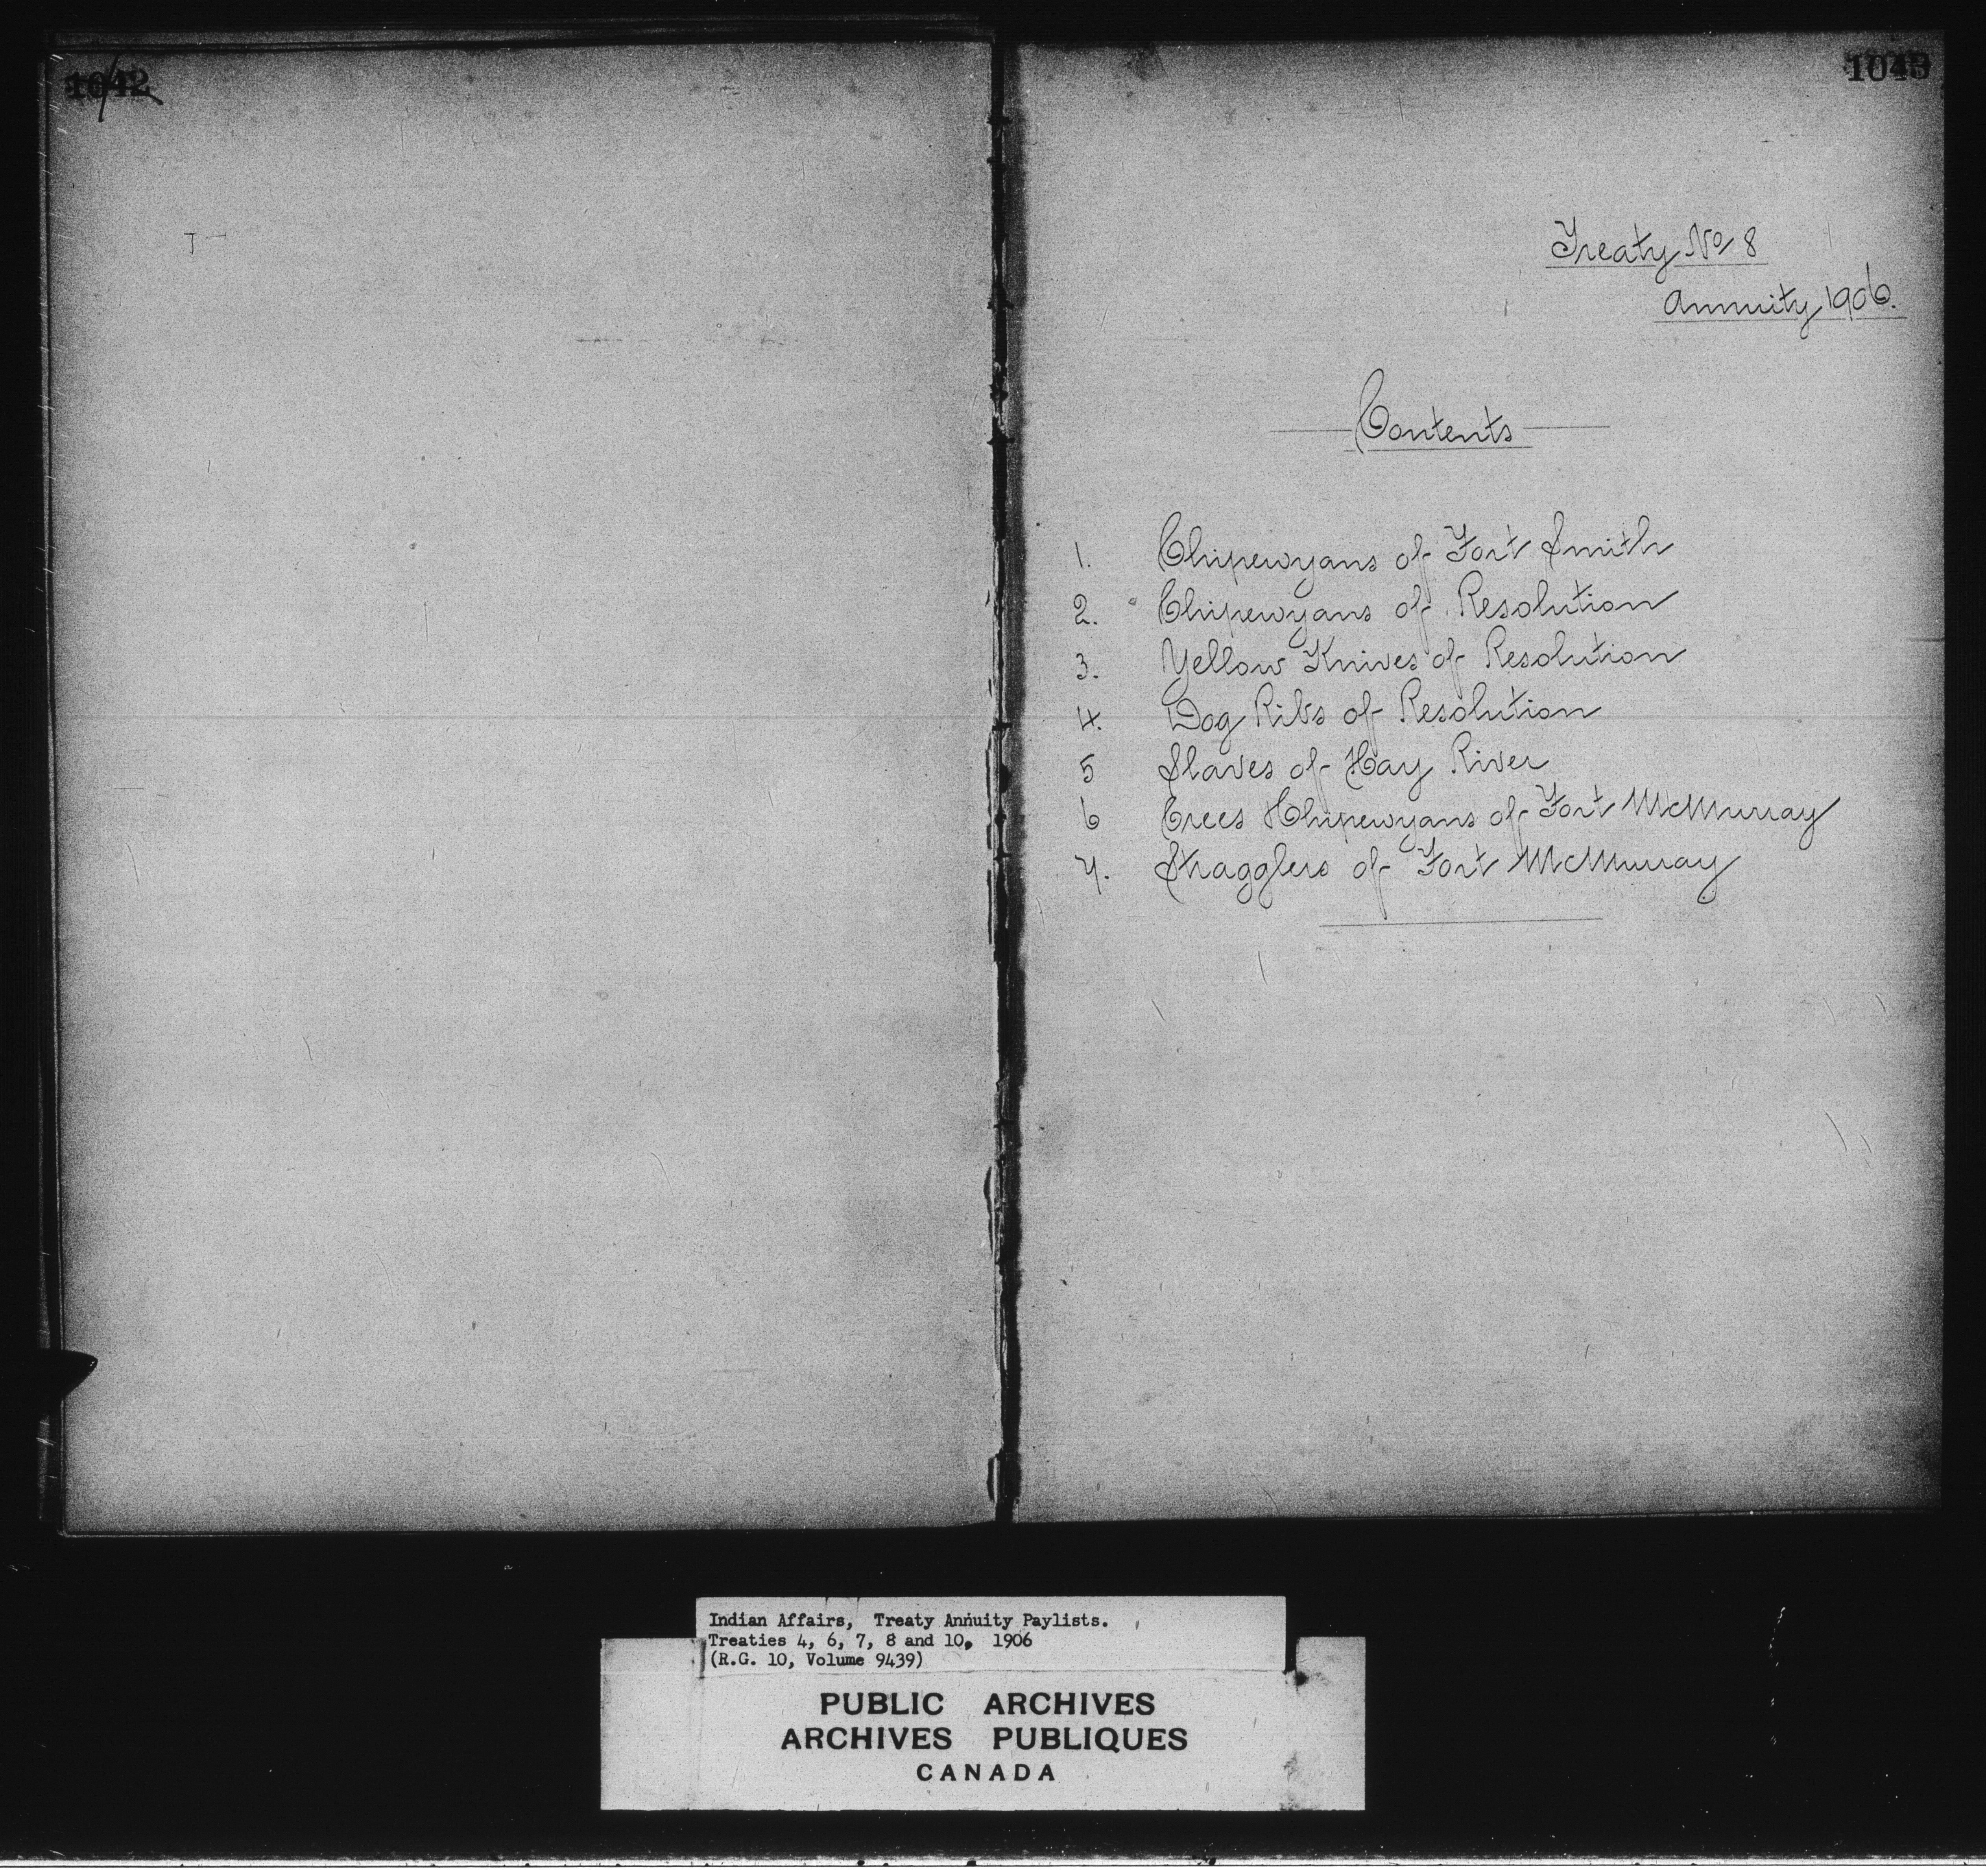 1042
1043
Treaty No 8
Annuity 1906.
Contents
1. Chipewyans of Fort Smith
2. Chipewyans of Resolution
3. Yellow Knives of Resolution
4. Dog Ribs of Resolution
5 Slaves of Hay River
6 Crees Chipewyans of Fort McMurray
7. Stragglers of Fort McMurray
Indian Affairs, Treaty Annuity Paylists.
Treaties 4, 6, 7, 8 and 10, 1906
(R.G. 10, Volume 9439)
PUBLIC ARCHIVES
ARCHIVES PUBLIQUES
CANADA